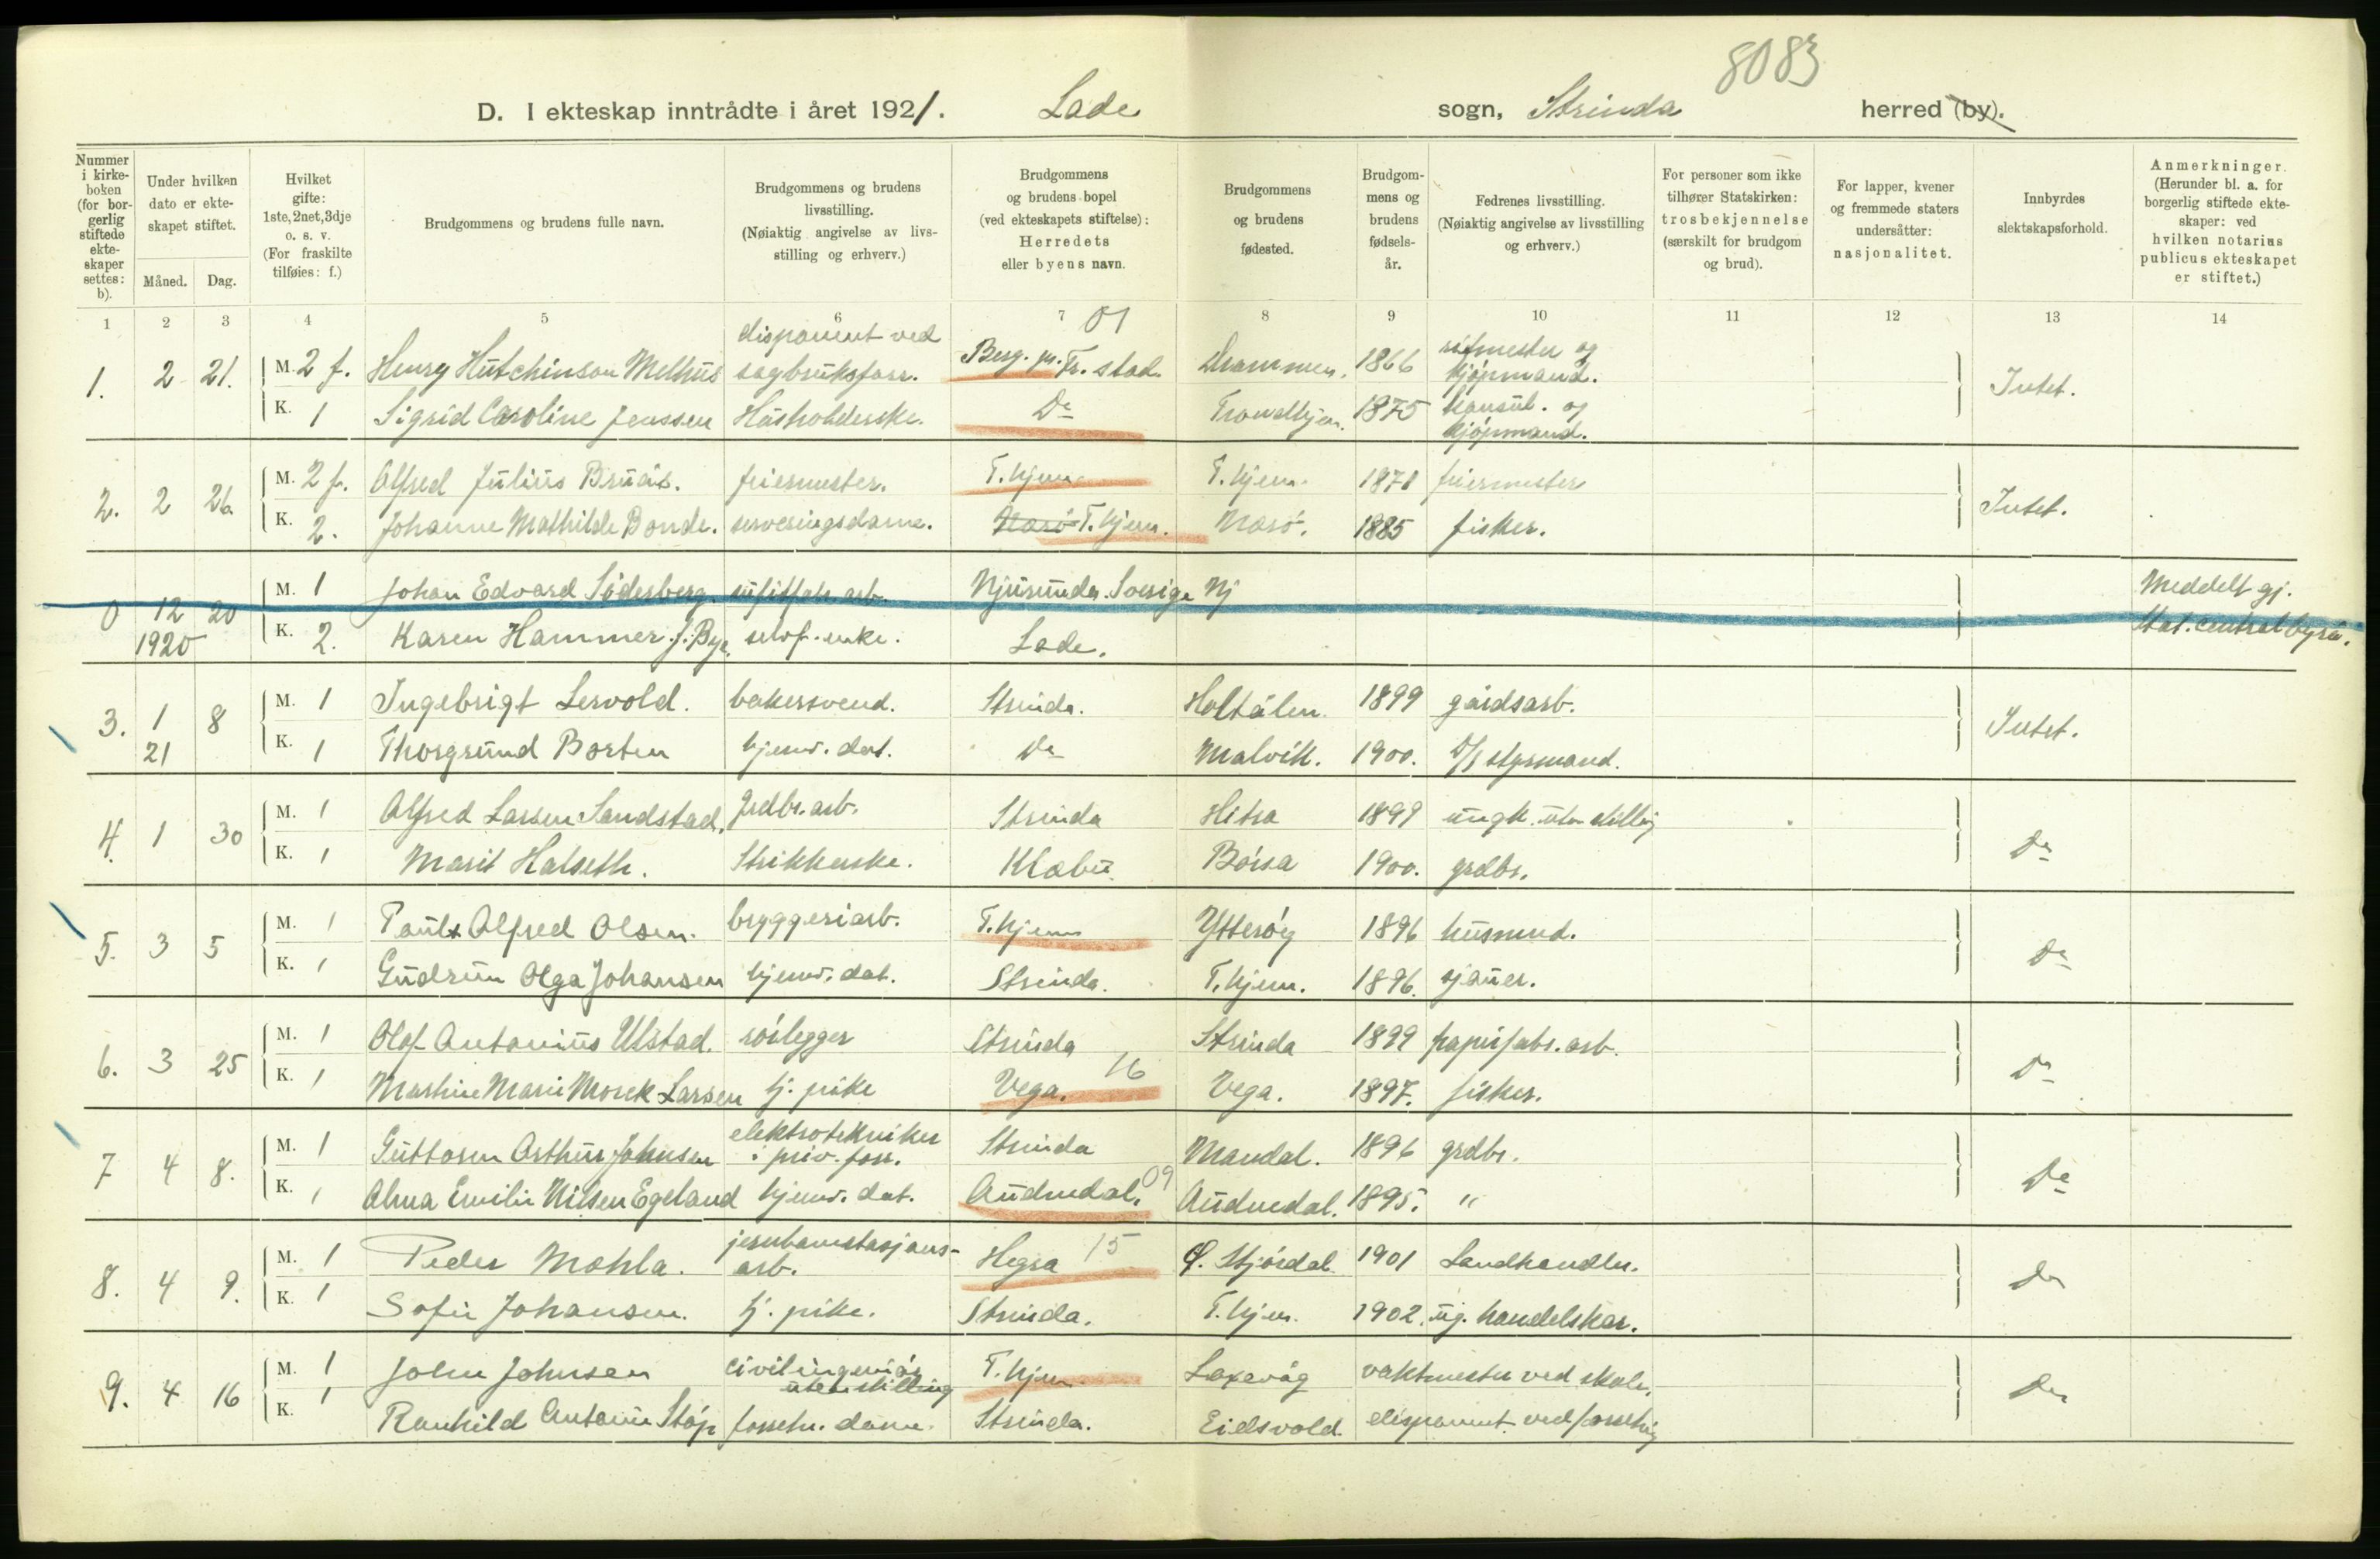 8083
D. I ekteskap inntrådte i året 1921. Lade sogn, Strinda herred (by).
Nummer i kirkeboken (for borgerlig stiftede ekteskaper settes: b).
Under hvilken dato er ekteskapet stiftet.
Måned. Dag.
Hvilket gifte: 1ste, 2net, 3dje o. s. v. (For fraskilte tilføies: f.)
Brudgommens og brudens fulle navn.
Brudgommens og brudens livsstilling. (Nøiaktig angivelse av livsstilling og erhverv.)
Brudgommens og brudens bopel (ved ekteskapets stiftelse): Herredets eller byens navn.
Brudgommens og brudens fødested.
Brudgommens og brudens fødselsår.
Fedrenes livsstilling. (Nøiaktig angivelse av livsstilling og erhverv.)
For personer som ikke tilhører Statskirken: trosbekjennelse (særskilt for brudgom og brud).
For lapper, kvener og fremmede staters undersåtter: nasjonalitet.
Innbyrdes slektskapsforhold.
Anmerkninger. (Herunder bl. a. for borgerlig stiftede ekteskaper: ved hvilken notarius publicus ekteskapet er stiftet.)
1 2 3 4 5 6 7 8 9 10 11 12 13 14
01
1. 2 21. M. 2 f. Henry Hutchinson Melhus disponent ved sagbruksforr. Berg. pr. Tr. stad. Drammen. 1866 kjøpmand. Intet.
K. 1 Sigrid Caroline Jenssen Husholderske. Do Trondhjem. 1875 konsul. og kjøpmand.
2. 2 26. M. 2 f. Alfred Julius feiermester. T.hjem. T.hjem. 1871 feiermester Intet.
K. 2. Johanne Mathilde Bonde. serveringsdame. T.hjem. 1885 fisker.
0 12 20 1920 M. 1 Johan Edvard Söderberg. Njurunda. Sverige Nj Meddelt gj. Stat. centralbyrå.
K. 2. Karen Hammer f. Bye. enke. Lade.
3. 1 8 21 M. 1 Ingebrigt Lervold. bakersvend. Strinda. Holtålen. 1899 gårdsarb. Intet.
K. 1 Thorgrund Borten hjemv. dat. Do Malvik. 1900. D/S styrmand.
4. 1 30 M. 1 Alfred Larsen Sandstad. grdbr. arb. Strinda Hitra 1899 ungk. uten stilling Do
K. 1 Marit Halseth. Strikkerske. Klæbu. Børsa 1900. grdbr.
5. 3 5 M. 1 Paul Alfred Olsen. bryggeriarb. T.hjem Ytterøy 1896 husmnd. Do
K. 1 Gudrun Olga Johansen hjemv. dat. Strinda. T.hjem. 1896. sjauer.
6. 3 25 M. 1 Olof Antonius Ulstad. rørlegger Strinda Strinda 1899 papirfabr. arb. Do
K. 1 Martine Marie Morek Larsen tj. pike Vega. 16 Vega. 1897. fisker.
7 4 8. M. 1 Guttorm Arthur Johnsen elektrotekniker i priv. forr. Strinda Mandal. 1896 grdbr. Do
K. 1 Alma Emilie Nilsen Egeland hjemv. dat. Audnedal. 09 Audnedal. 1895. "
8. 4 9. M. 1 Peder Mæhla. jernbanestasjons-arb. Hegra 15 Ø. Stjørdal 1901 Landhandler. Do
K. 1 Sofie Johansen. tj. pike. Strinda. T.hjem. 1902. ug. handelskar.
9. 4 16 M. 1 John Johnsen civilingeniør uten stilling T.hjem. Laxevåg vaktmester ved skole. Do
K. 1 Ranhild Antonie Støp forretn. dame. Strinda. Eidsvold. disponent ved forretnig